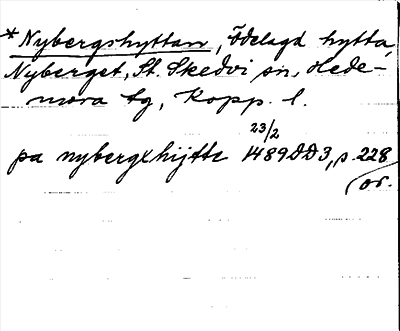 *Nybergshyttan, Ödelagd hytta,
Nyberget, St. Skedvi sn, Hede-
mora tg, Kopp. l.
23/2
pa nybergxhijtte 1489 DD3, s. 228
or.